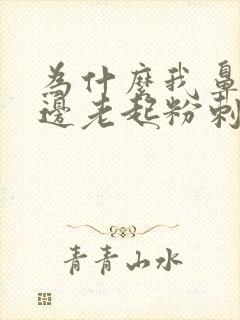 為什麼我鼻
邊老起粉刺
青青山水